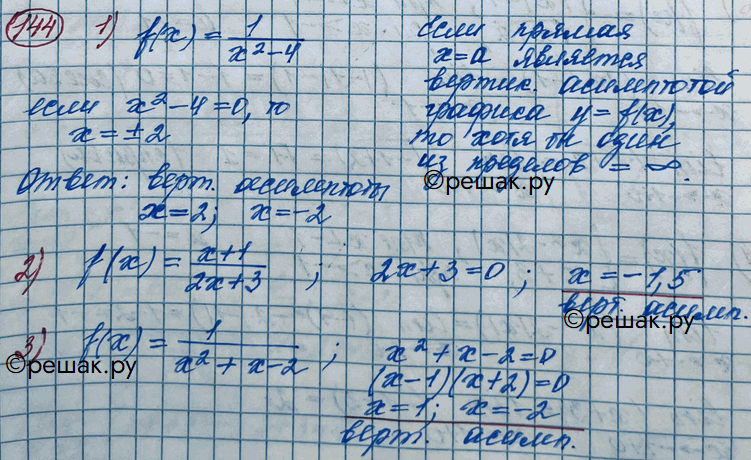 144 1) f(x) = 1/(x² - 4)
если прямая
x = a является
вертик. асимптотой
графика y = f(x),
то хотя бы один
из пределов = ∞.
©решак.ру
если x² - 4 = 0, то
x = ±2
Ответ: верт. асимптоты
x = 2; x = -2
2) f(x) = (x+1)/(2x+3) ; 2x+3 = 0 ; x = -1,5
верт. асимп.
©решак.ру
3) f(x) = 1/(x² + x - 2) ; x² + x - 2 = 0
©решак.ру
(x-1)(x+2) = 0
x = 1; x = -2
верт. асимп.